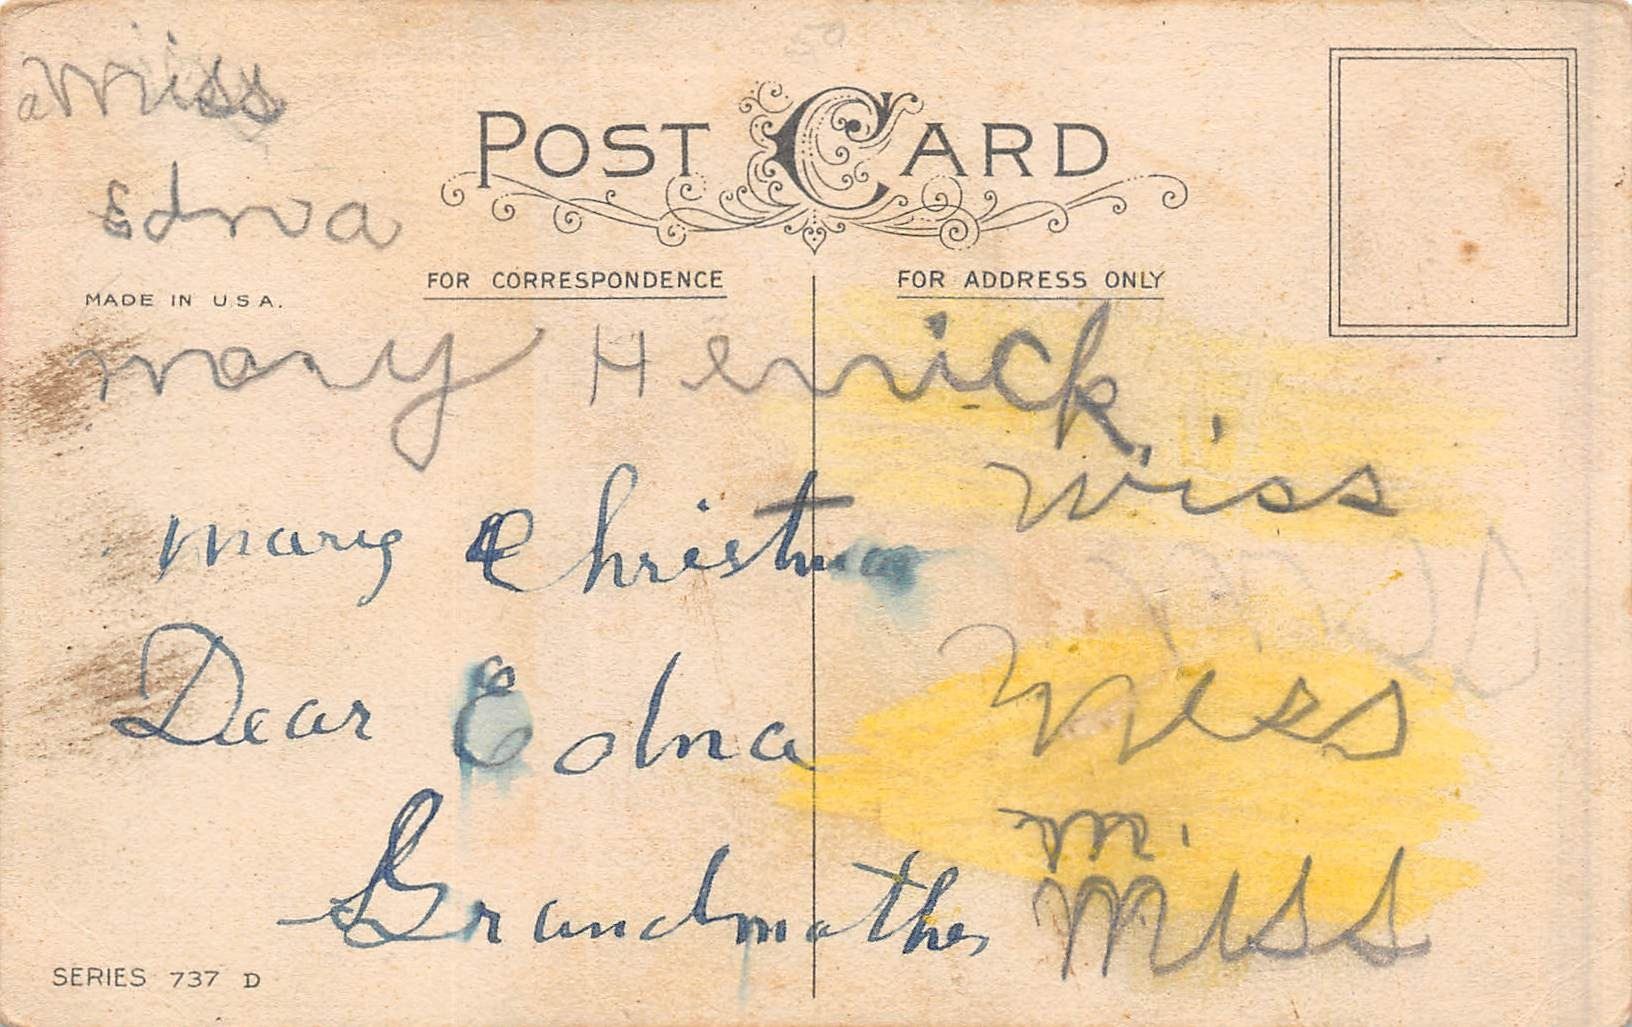 50
a Miss
POST CARD
Edna
FOR CORRESPONDENCE
FOR ADDRESS ONLY
MADE IN U.S.A.
Mary Herrick
Miss
Mary Christmas
Miss
Dear Edna
Miss
Miss
Grandmother
SERIES 737 D